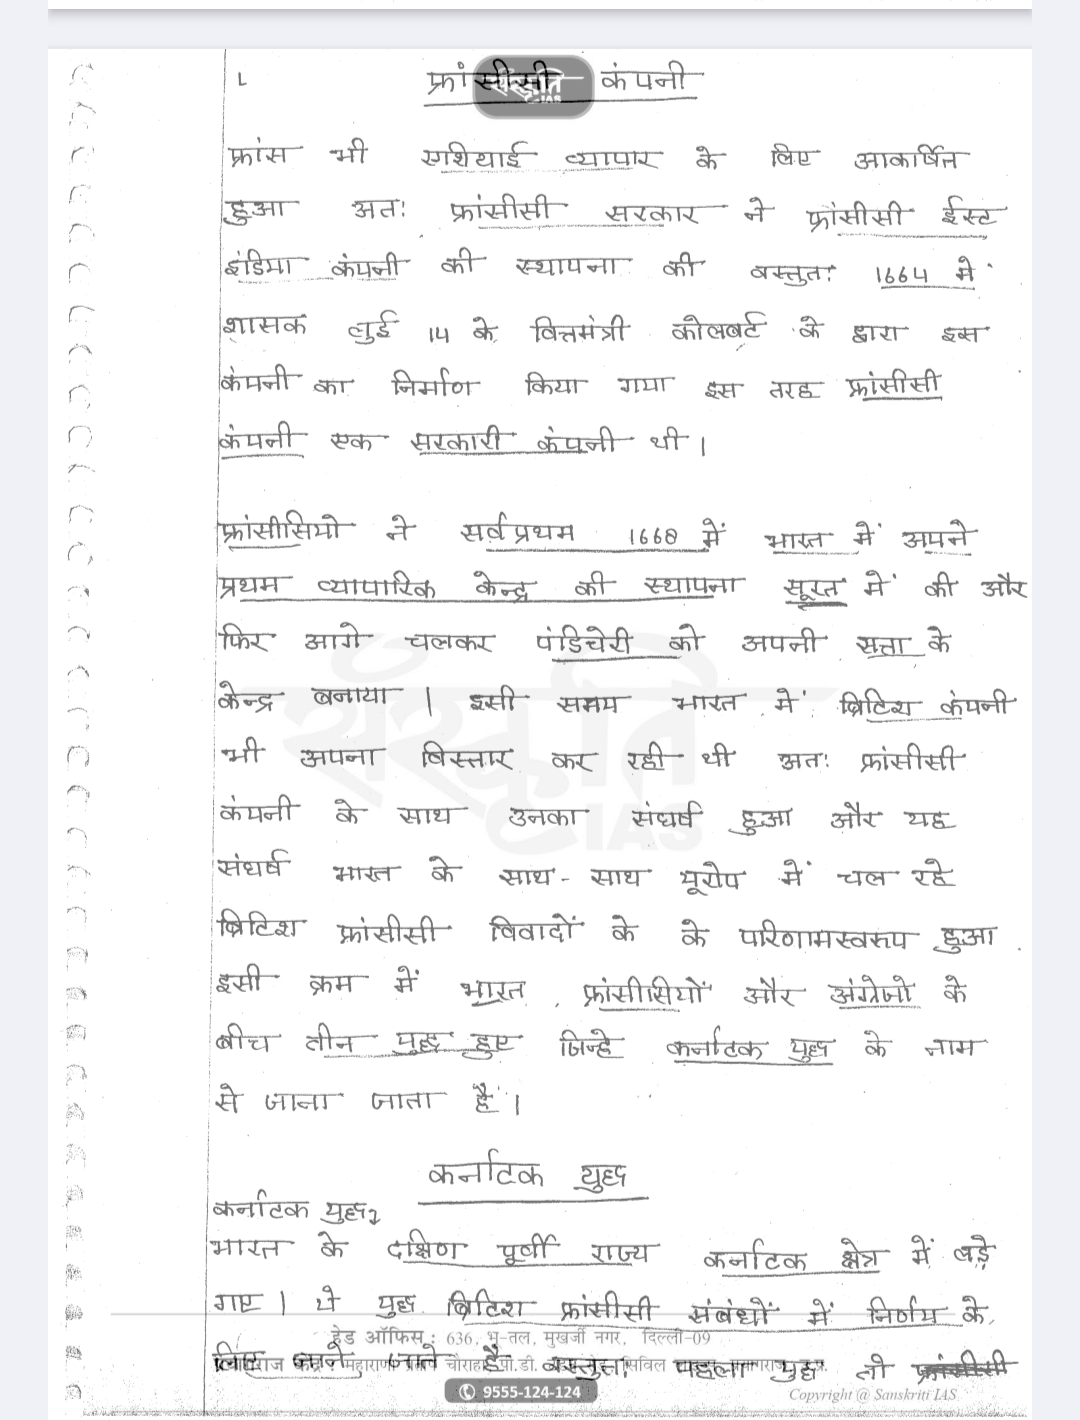 L फ्रांसीसी कंपनी
संस्कृति
IAS
फ्रांस भी एशियाई व्यापार के लिए आकर्षित
हुआ अतः फ्रांसीसी सरकार ने फ्रांसीसी ईस्ट
इंडिया कंपनी की स्थापना की वस्तुतः 1664 में
शासक लुई 14 के वित्तमंत्री कोलबर्ट के द्वारा इस
कंपनी का निर्माण किया गया इस तरह फ्रांसीसी
कंपनी एक सरकारी कंपनी थी।
फ्रांसीसियो ने सर्वप्रथम 1668 में भारत में अपने
प्रथम व्यापारिक केन्द्र की स्थापना सूरत में की और
फिर आगे चलकर पंडिचेरी को अपनी सत्ता के
केन्द्र बनाया। इसी समय भारत में ब्रिटिश कंपनी
भी अपना विस्तार कर रही थी अतः फ्रांसीसी
कंपनी के साथ उनका संघर्ष हुआ और यह
संघर्ष भारत के साथ-साथ यूरोप में चल रहे
ब्रिटिश फ्रांसीसी विवादों के के परिणामस्वरूप हुआ
इसी क्रम में भारत, फ्रांसीसियों और अंग्रेजो के
बीच तीन युद्ध हुए जिन्हे कर्नाटक युद्ध के नाम
से जाना जाता है।
संस्कृति
IAS
कर्नाटक युद्ध
कर्नाटक युद्ध
भारत के दक्षिण पूर्वी राज्य कर्नाटक क्षेत्र में लड़े
गए। ये युद्ध ब्रिटिश फ्रांसीसी संबंधों में निर्णय के
हेड ऑफिस: 636, भू-तल, मुखर्जी नगर, दिल्ली-09
लिए जाने जाते है वस्तुतः पहला युद्ध तो फ्रांसीसी
9555-124-124
Copyright @ Sanskriti IAS